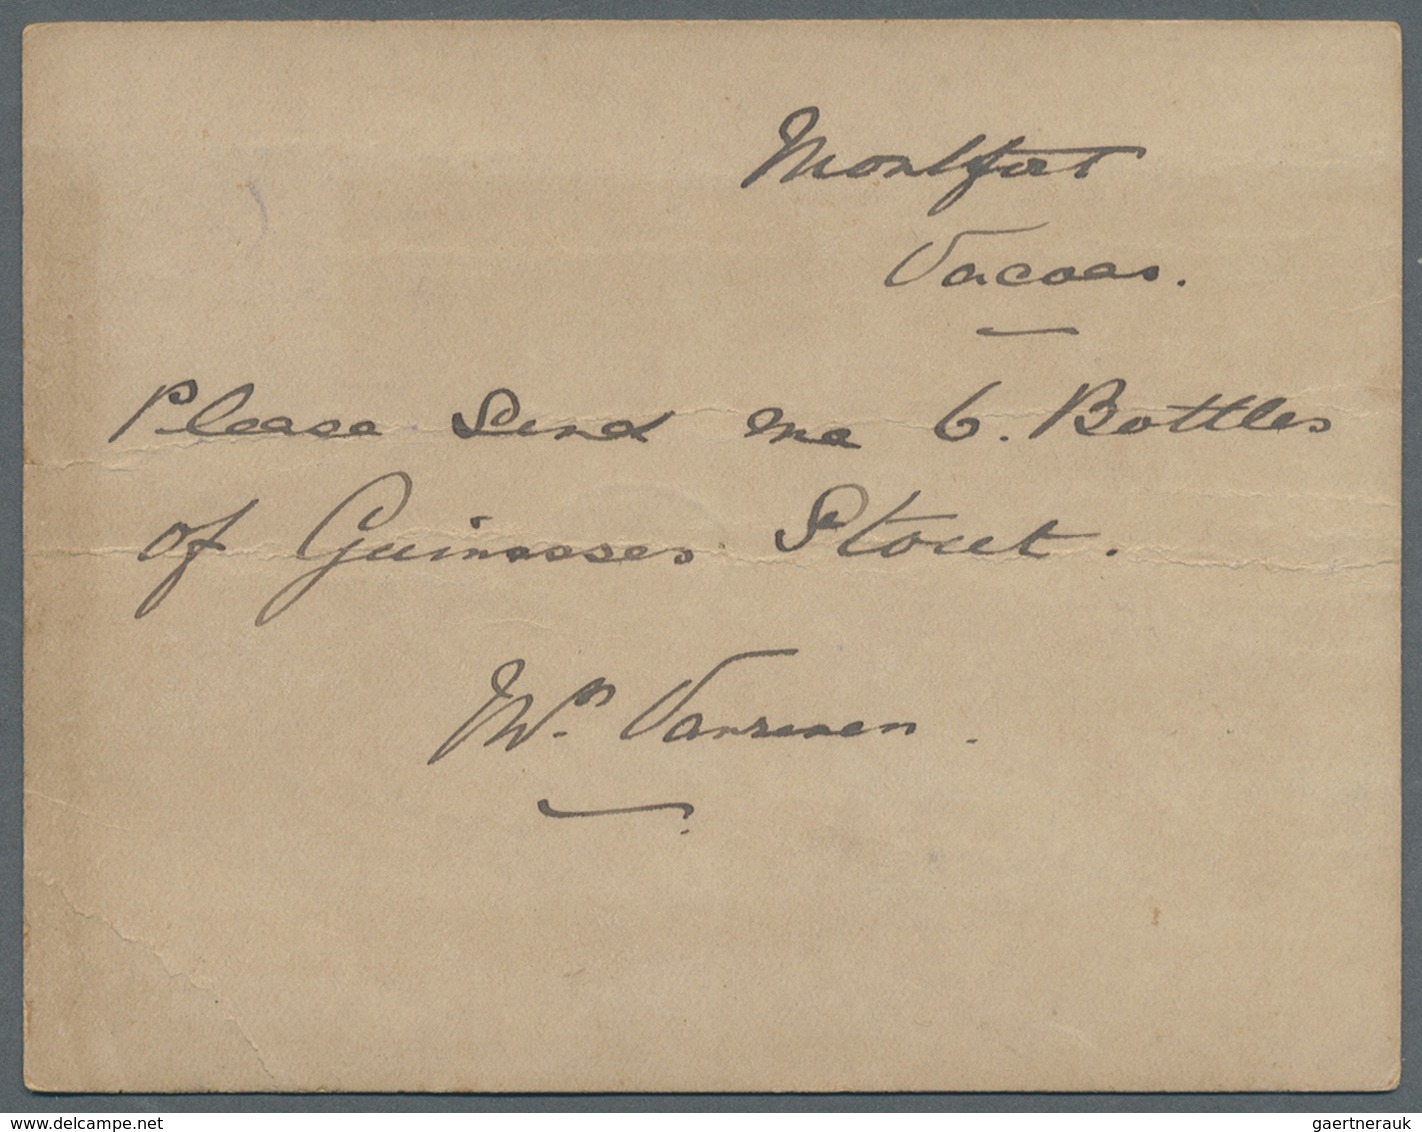 Montfort
Vacoas.
Please Send me 6. Bottles
of Guinesses Stout.
www.delcampe.net
gaertnerauk